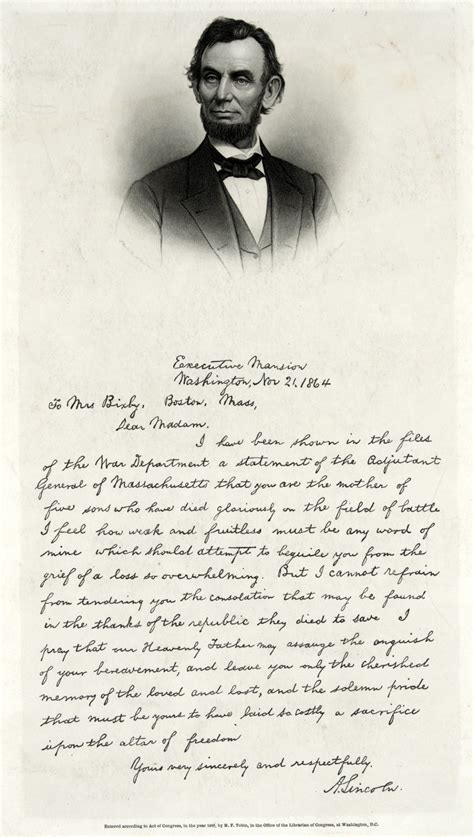 Executive Mansion
Washington, Nov 21, 1864
To Mrs Bixby, Boston, Mass,
Dear Madam.
I have been shown in the files
of the War Department a statement of the Adjutant
General of Massachusetts that you are the mother of
five sons who have died gloriously on the field of battle
I feel how weak and fruitless must be any word of
mine which should attempt to beguile you from the
grief of a loss so overwhelming. But I cannot refrain
from tendering you the consolation that may be found
in the thanks of the republic they died to save I
pray that our Heavenly Father may assuage the anguish
of your bereavement, and leave you only the cherished
memory of the loved and lost, and the solemn pride
that must be yours to have laid so costly a sacrifice
upon the altar of freedom
Yours very sincerely and respectfully.
A. Lincoln.
Entered according to Act of Congress, in the year by M. F. Tobin, in the Office of the Librarian of Congress, at Washington, D.C.